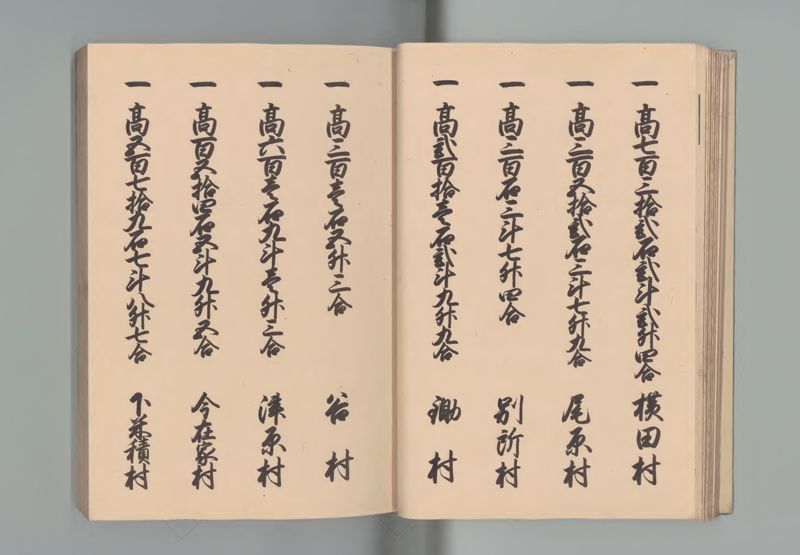 一 高七百三拾弐石弐斗弐升四合 横田村
一 高三百五拾弐石三斗七升九合 尾原村
一 高三百石三斗七升四合 別所村
一 高弐百拾壱石弐斗九升九合 鋤村
一 高三百壱石五升三合 谷村
一 高六百壱石九斗壱升三合 津原村
一 高百五拾四石五斗九升五合 今在家村
一 高五百七拾九石七斗八升七合 下米積村